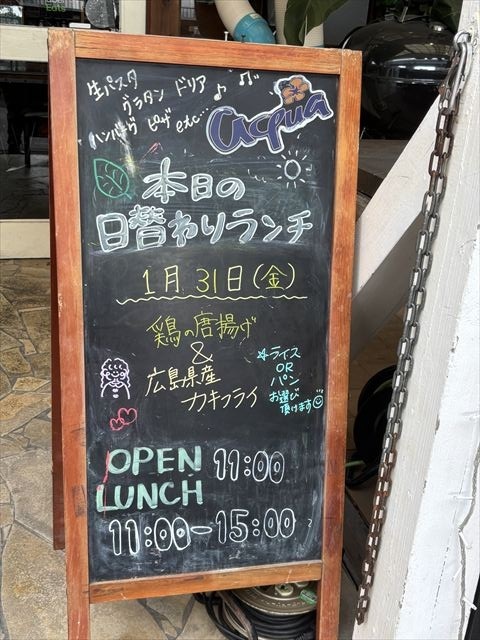 生パスタ
グラタン ドリア
ハンバーグ ピザ etc...
acqua
本日の
日替わりランチ
1月31日(金)
鶏の唐揚げ
&
広島県産
カキフライ
☆ライス
OR
パン
お選び
頂けます
OPEN 11:00
LUNCH
11:00-15:00